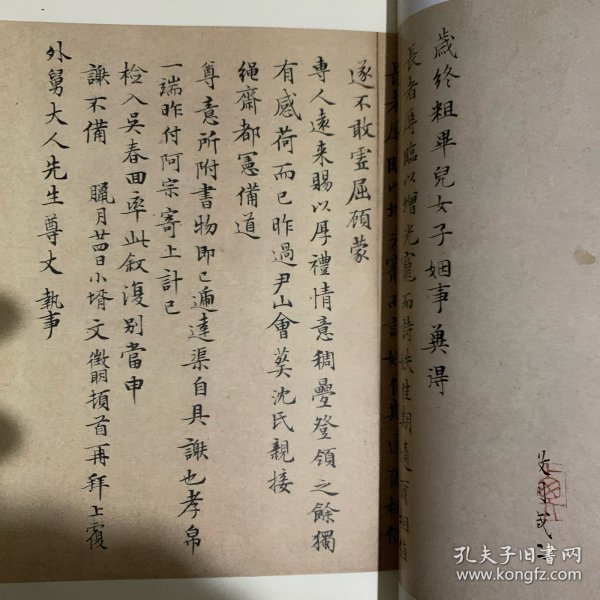 歲終粗畢兒女子姻事冀得
長者辱臨以增光寵而
遂不敢虛屈顧蒙
專人遠来賜以厚禮情意稠疊登領之餘獨
有感荷而已昨過尹山會葬沈氏親接
繩齋都憲備道
尊意所附書物即已遞達渠自具謝也孝帛
一端昨付阿宗寄上計已
檢入吳春回率此敘復別當申
謝不備 臘月廿四日小壻文徵明頓首再拜上覆
外舅大人先生尊丈 執事
孔夫子旧书网
www.kongfz.com